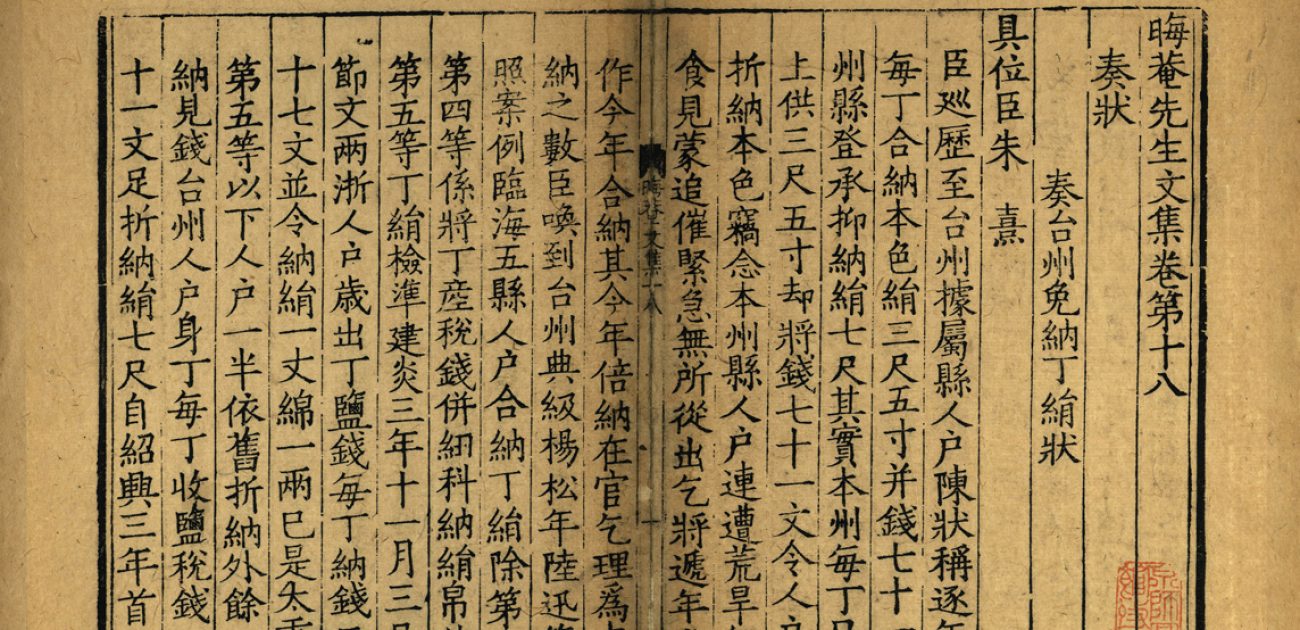 晦菴先生文集卷第十八
奏狀
奏台州免納丁絹狀
具位臣朱 熹
臣廵歷至台州據屬縣人户陳狀稱逐年
每丁合納本色絹三尺五寸并錢七十
州縣登承抑納絹七尺其實本州每丁
上供三尺五寸却將錢七十一文令人户
折納本色竊念本州縣人户連遭荒旱
食見蒙追催緊急無所從出乞將遞年
作今年合納其今年倍納在官乞理爲
晦菴文集十八
一
納之數臣喚到台州典級楊松年陸迅
照案例臨海五縣人户合納丁絹除第
第四等係將丁産稅錢併紐科納絹帛
第五等丁絹檢準建炎三年十一月三
節文兩浙人户歲出丁鹽錢每丁納錢
十七文並令納絹一丈綿一兩已是太
第五等以下人户一半依舊折納外餘
納見錢台州人户身丁每丁收鹽稅錢
十一文足折納絹七尺自紹興三年首